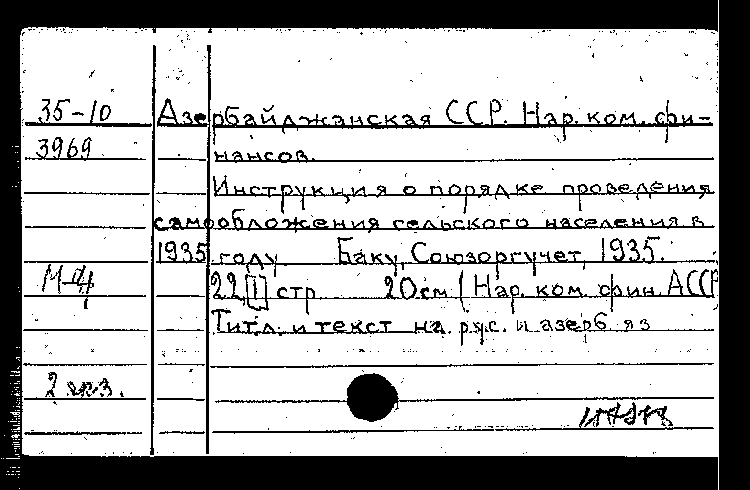 35-10 Азербайджанская ССР. Нар. ком. фи-
3969 нансов.
Инструкция о порядке проведения
самообложения сельского населения в
1935 году Баку, Союзоргучет, 1935.
22,[1] стр 20см (Нар. ком. фин. АССР
Титл. и текст на рус. и азерб яз
2 экз.